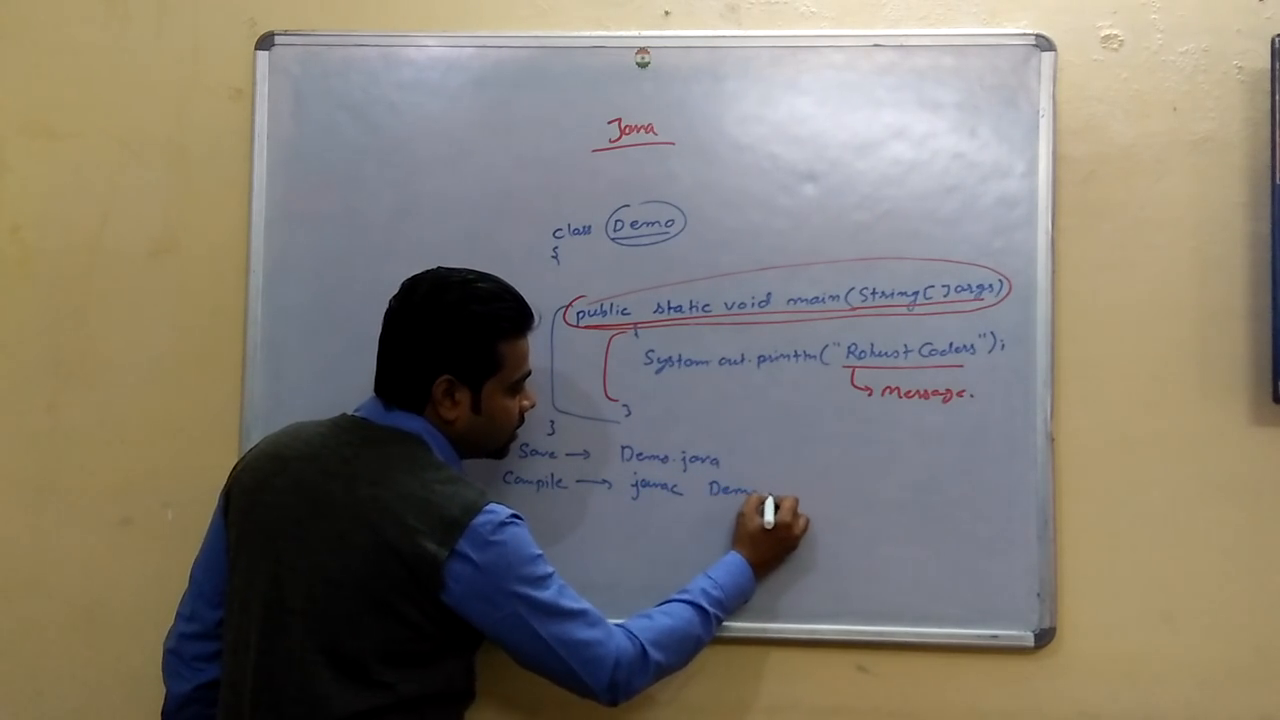 Java
class Demo
{
public static void main(String[]args)
{
System.out.println("Robust Coders");
Message.
}
}
Save → Demo.java
Compile → javac Demo